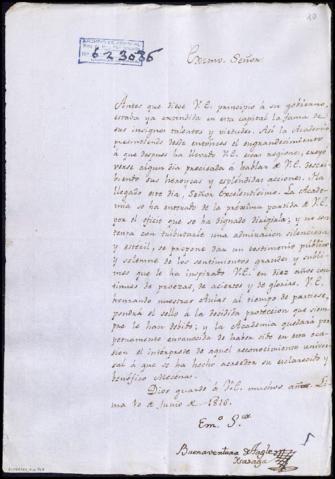 10
623036
Excmo. Señor.
Antes que diese V.E. principio á su gobierno,
estaba ya extendida en esta capital la fama de
sus insignes talentos y virtudes. Así la Academia
presintiendo desde entonces el engrandecimiento
á que despues ha llevado V.E. estas regiones, creyó
verse algun dia precisada á hablar á V.E. descri
biendo sus heroycas y esplendidas acciones. Ha
llegado este dia, Señor Excelentísimo. La Acade
mia se ha enterado de la próxima partida de V.E.
por el oficio que se ha dignado dirigirla; y no con
tenta con tributarle una admiracion silenciosa
y estéril, se propone dar un testimonio público
y solemne de los sentimientos grandes y subli
mes que le ha inspirado V.E. en diez años con
tinuos de proezas, de aciertos y de glorias. V.E.
honrando nuestras Aulas al tiempo de partirse,
pondrá el sello á la decidida proteccion que siem
pre le han debido; y la Academia quedará per
petuamente envanecida de haber sido en esta oca
sion el intérprete de aquel reconocimiento univer
sal á que se ha hecho acreedor su esclarecido y
benéfico Mecenas.
Dios guarde á V.E. muchos años. Li
ma 10 de Junio de 1816.
Emo. Sor.
Buenaventura de Aragon